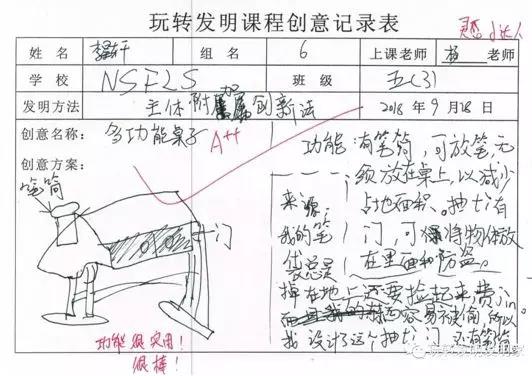 玩转发明课程创意记录表
灵感小达人
姓名
轩
组名
6
上课老师
杨 老师
学校
NSFLS
班级
五(3)
发明方法
主体附加创新法
2018年9月18日
创意名称:
多功能桌子
A++
创意方案:
笔筒
门
功能:有笔筒,可放笔无
须放在桌上,以减少
占地面积。抽土有
门,可将物体放
在里面和防盗。
来源:
我的笔
袋总是
掉在地上还要捡起来,费
我设计了这个抽土门还有笔筒
功能很实用!
很棒!